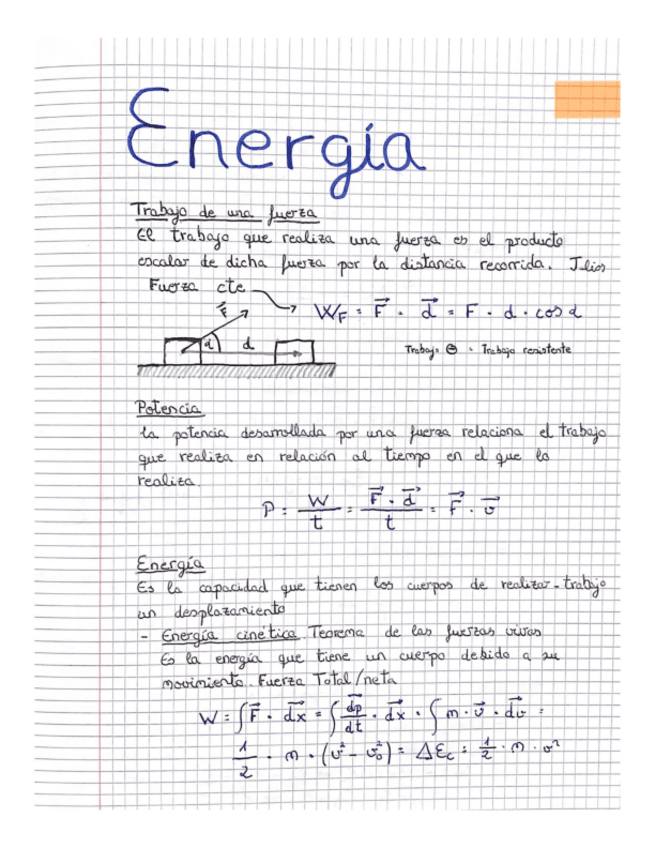 Energía
Trabajo de una fuerza
El trabajo que realiza una fuerza es el producto
escalar de dicha fuerza por la distancia recorrida. Julios
Fuerza cte
W_F = F⃗ · d⃗ = F · d · cos α
F⃗
α
d
Trabajo ⊖ · Trabajo resistente
Potencia
la potencia desarrollada por una fuerza relaciona el trabajo
que realiza en relación al tiempo en el que lo
realiza.
P = W/t = F⃗ · d⃗/t = F⃗ · v⃗
Energía
Es la capacidad que tienen los cuerpos de realizar - trabajo
un desplazamiento
- Energía cinética. Teorema de las fuerzas vivas
Es la energía que tiene un cuerpo debido a su
movimiento. Fuerza Total/neta
W = ∫F⃗ · dx⃗ = ∫dp⃗/dt · dx⃗ · ∫m · v⃗ · dv⃗ =
1/2 · m · (v² - v₀²) = ΔEc = 1/2 · m · v²